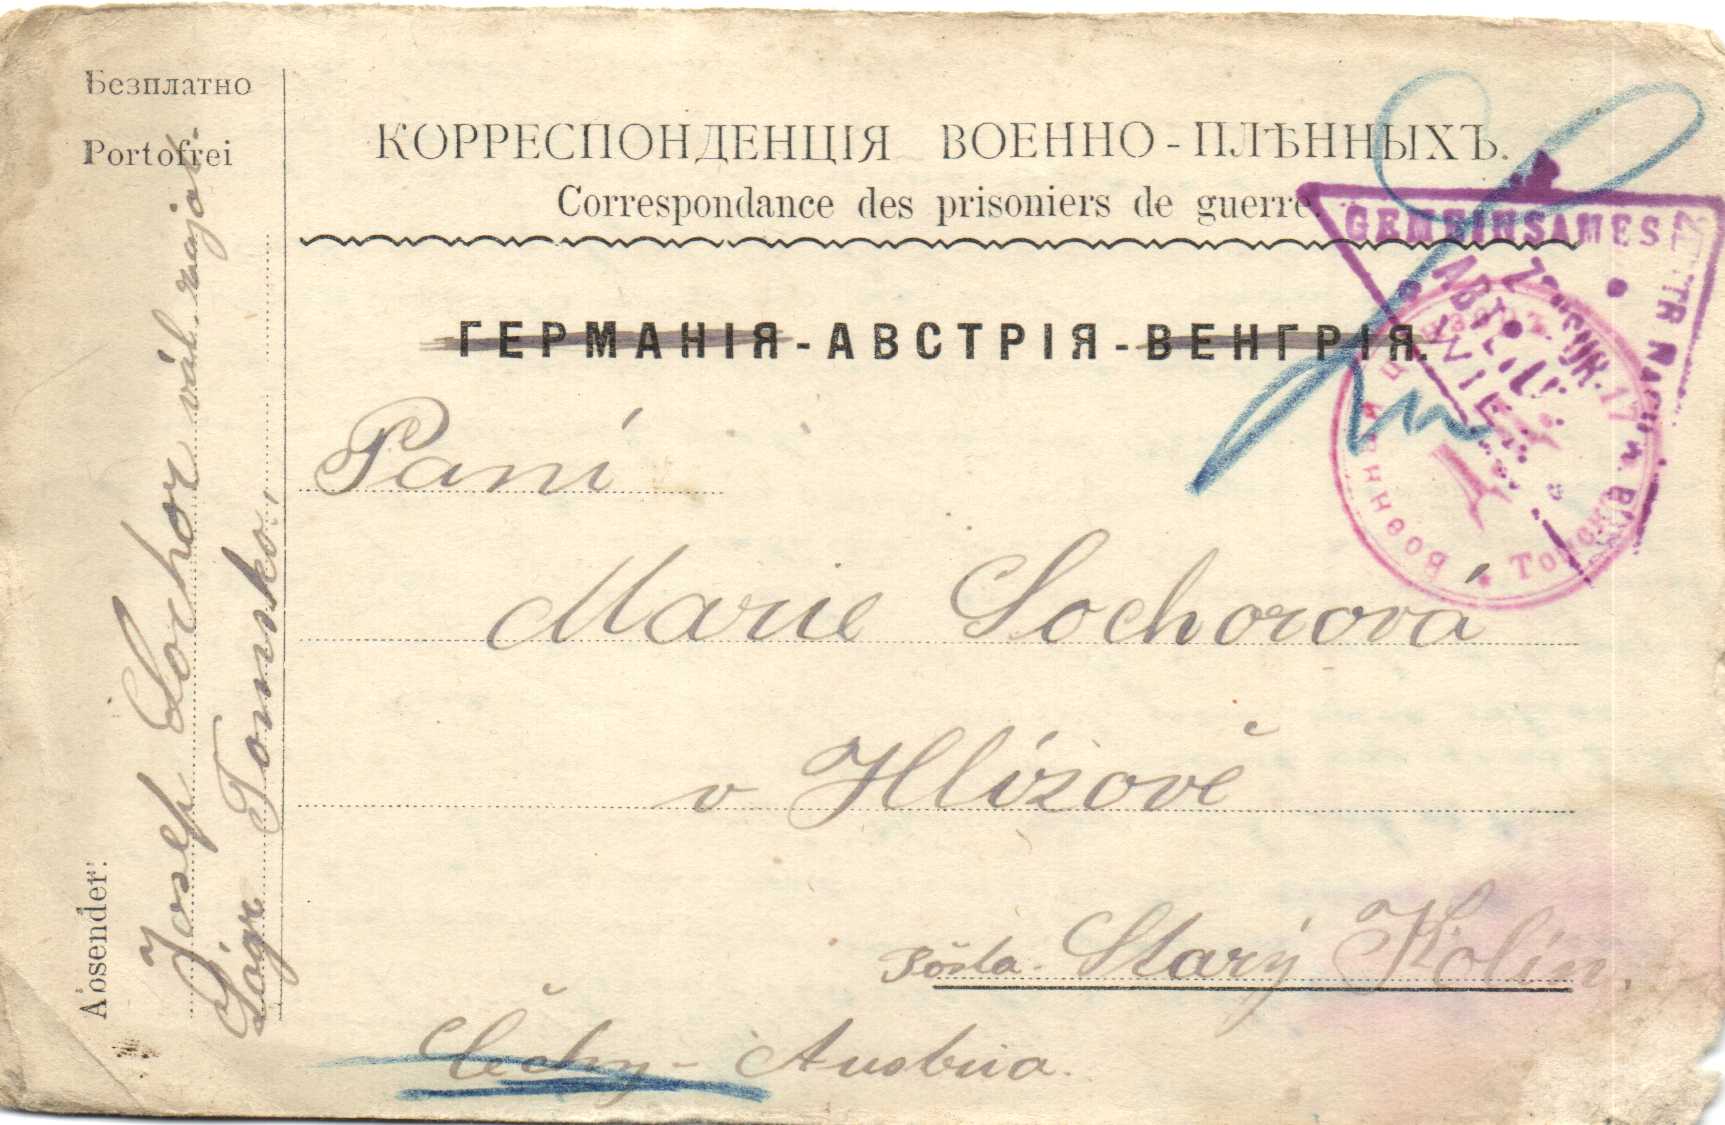 Безплатно
Portofrei
КОРРЕСПОНДЕНЦІЯ ВОЕННО-ПЛѢННЫХЪ.
Correspondance des prisoniers de guerre.
ГЕРМАНІЯ-АВСТРІЯ-ВЕНГРІЯ.
Paní
Marie Sochorová
v Hlízově
Pošta Starý Kolín.
Čechy - Austria.
Absender:
Josef Sochor vál. zajat.
Tomsko,
GEMEINSAMES
ZENTR NACHW.
ABTEILUNG
WIEN
Военная цензура
Томск